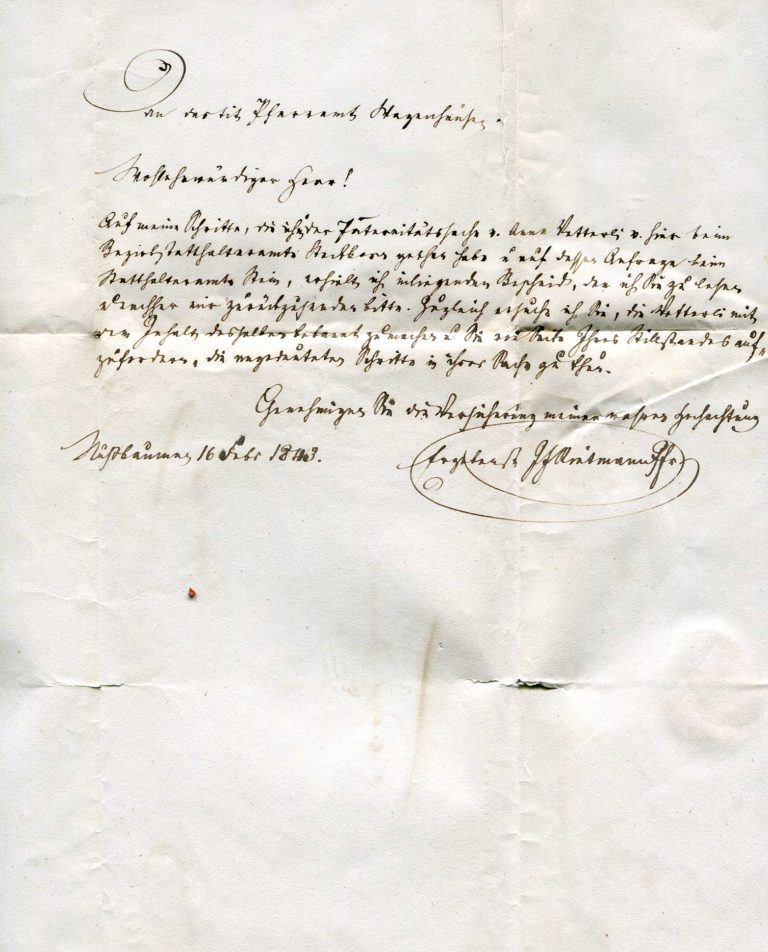 An das tit. Pfarramt Wagenhausen.
Wohlehrwürdiger Herr!
Auf meine Schritte, die ich in der Paternitätssache v. Anna Vetterli v. hier beim
Bezirksstatthalteramte Steckborn gethan habe u auf dessen Anfrage beim
Statthalteramte Stein, erhielt ich inliegenden Bescheid, den ich Sie zu lesen
u nachher mir zurückzusenden bitte. Zugleich ersuche ich Sie, die Vetterli mit
dem Inhalt desselben bekannt zu machen u Sie von Seite Ihres Stillstandes auf-
zufordern, die angedeuteten Schritte in ihrer Sache zu thun.
Genehmigen Sie die Versicherung meiner wahren Hochachtung
Nußbaumen 16 Febr 1843.
Ergebenst Rietmann Pfr